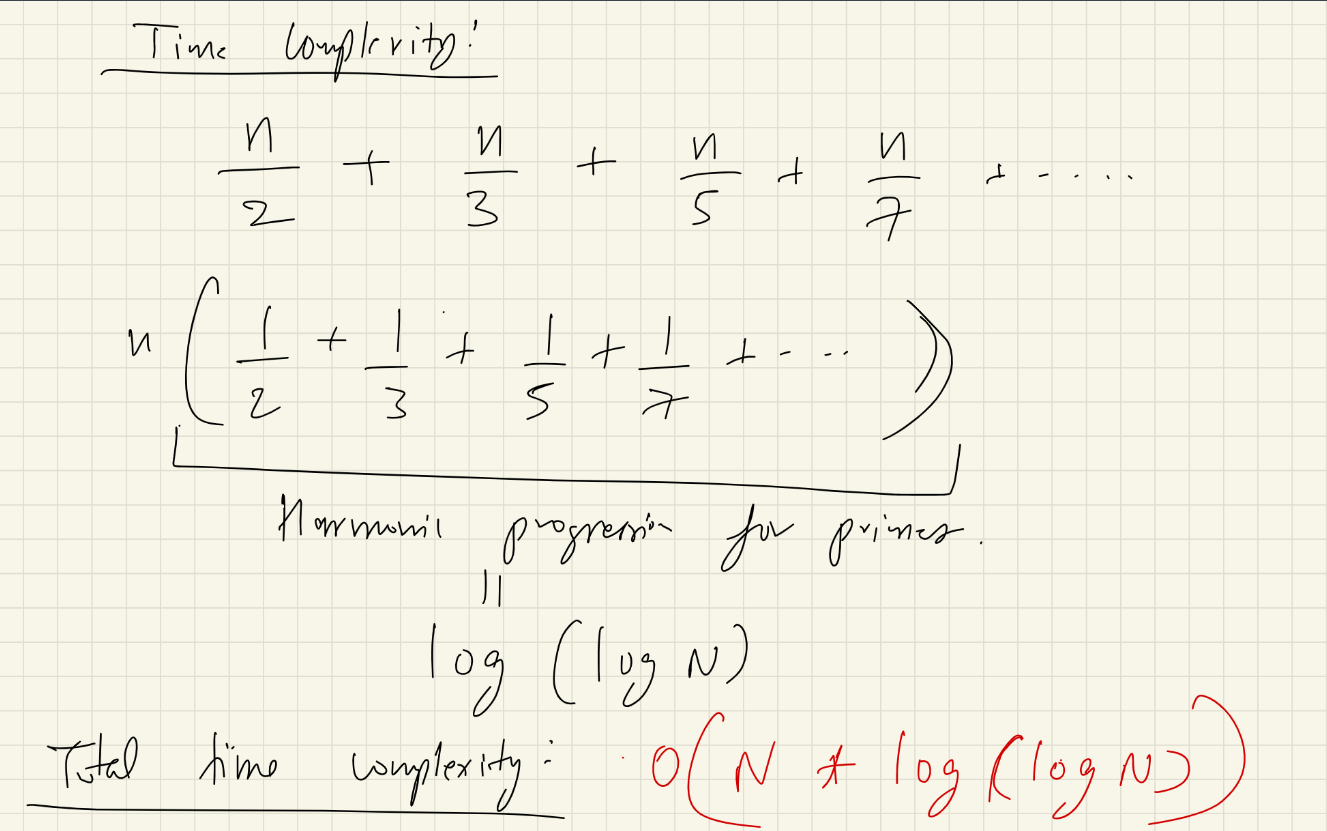 Time Complexity:
n/2 + n/3 + n/5 + n/7 + - ....
n ( 1/2 + 1/3 + 1/5 + 1/7 + - ... )
Harmonic progression for primes.
||
log (log N)
Total time complexity: O( N * log (log N) )